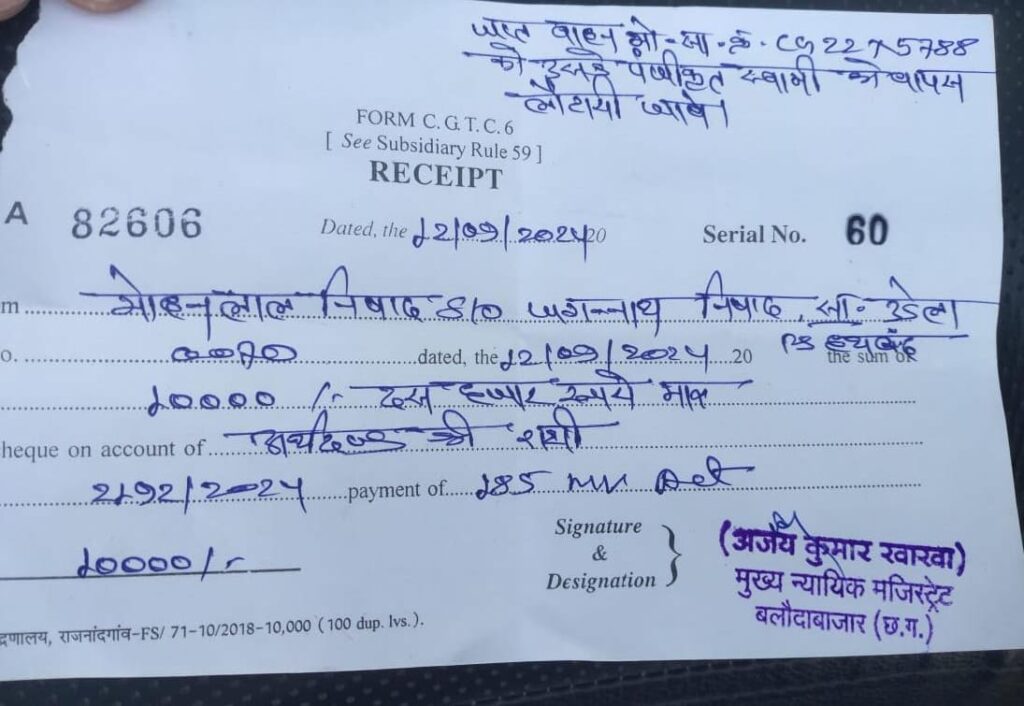 जप्त वाहन मो-सा-क्र. CG 22 X 5788
को उसके पंजीकृत स्वामी को वापस
लौटायी जावे।
FORM C. G. T. C. 6
[ See Subsidiary Rule 59 ]
RECEIPT
A 82606 Dated, the 12/09/2024 20 Serial No. 60
m मोहनलाल निषाद S/o जगन्नाथ निषाद, सा-उडेला
o. dated, the 12/09/2024 20 PS the sum of
10000 /- दस हजार रूपये मात्र
heque on account of अर्थदण्ड की राशी
2192/2024 payment of 185 MV Act
Signature
&
Designation
10000/-
(अजय कुमार खाखा)
मुख्य न्यायिक मजिस्ट्रेट
बलौदाबाजार (छ.ग.)
द्रणालय, राजनांदगांव-FS/ 71-10/2018-10,000 ( 100 dup. lvs. ).